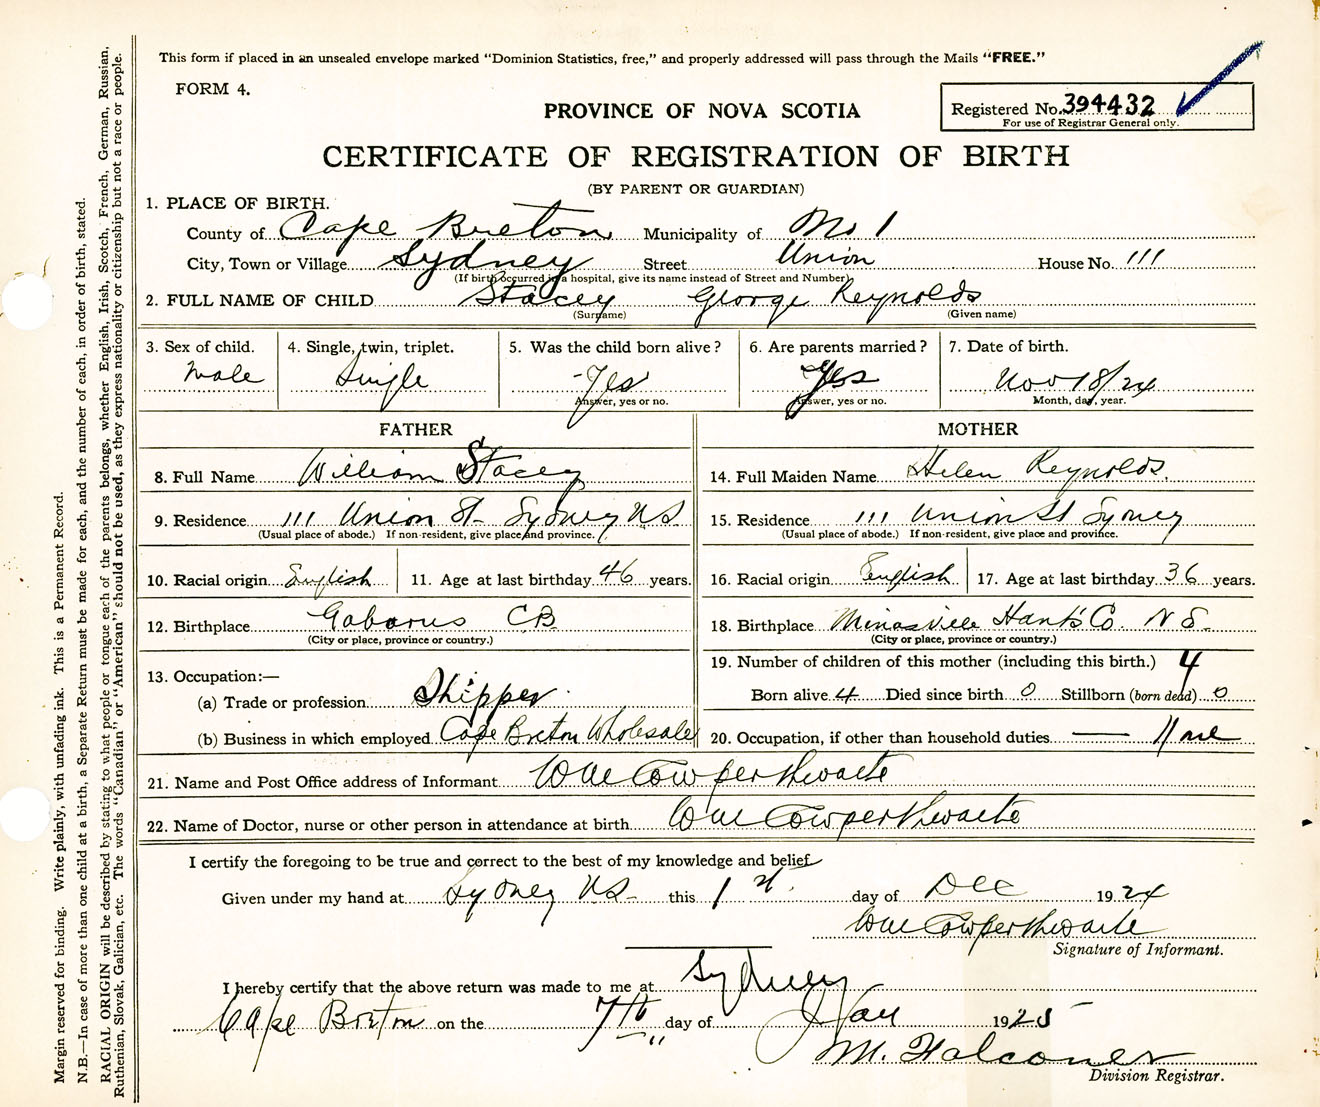 This form if placed in an unsealed envelope marked “Dominion Statistics, free,” and properly addressed will pass through the Mails “FREE.”
FORM 4.
Registered No. 394432
For use of Registrar General only.
PROVINCE OF NOVA SCOTIA
CERTIFICATE OF REGISTRATION OF BIRTH
(BY PARENT OR GUARDIAN)
1. PLACE OF BIRTH.
County of Cape Breton Municipality of No 1
City, Town or Village Sydney Street Union House No. 111
(If birth occurred in a hospital, give its name instead of Street and Number)
2. FULL NAME OF CHILD Stacey George Reynolds
(Surname) (Given name)
3. Sex of child. 4. Single, twin, triplet. 5. Was the child born alive? 6. Are parents married? 7. Date of birth.
Male Single Yes Yes Nov 18/24
Answer, yes or no. Answer, yes or no. Month, day, year.
FATHER MOTHER
8. Full Name William Stacey 14. Full Maiden Name Helen Reynolds.
9. Residence 111 Union St- Sydney NS 15. Residence 111 Union St Sydney
(Usual place of abode.) If non-resident, give place and province. (Usual place of abode.) If non-resident, give place and province.
10. Racial origin English 11. Age at last birthday 46 years. 16. Racial origin English 17. Age at last birthday 36 years.
12. Birthplace Gabarus CB 18. Birthplace Minasville Hants Co. N S.
(City or place, province or country.) (City or place, province or country.)
13. Occupation:— 19. Number of children of this mother (including this birth.) 4
(a) Trade or profession Shipper Born alive 4 Died since birth 0 Stillborn (born dead) 0
(b) Business in which employed Cape Breton Wholesale 20. Occupation, if other than household duties — None
21. Name and Post Office address of Informant Wm Cowperthwaite
22. Name of Doctor, nurse or other person in attendance at birth Wm Cowperthwaite
I certify the foregoing to be true and correct to the best of my knowledge and belief
Given under my hand at Sydney NS- this 1st. day of Dec 1924
Wm Cowperthwaite
Signature of Informant.
I hereby certify that the above return was made to me at Sydney
Cape Breton on the 7th day of Jan 1925
M. Falconer
Division Registrar.
Margin reserved for binding. Write plainly, with unfading ink. This is a Permanent Record.
N.B.—In case of more than one child at a birth, a Separate Return must be made for each, and the number of each, in order of birth, stated.
RACIAL ORIGIN will be described by stating to what people or tongue each of the parents belongs, whether English, Irish, Scotch, French, German, Russian,
Ruthenian, Slovak, Galician, etc. The words “Canadian” or “American” should not be used, as they express nationality or citizenship but not a race or people.